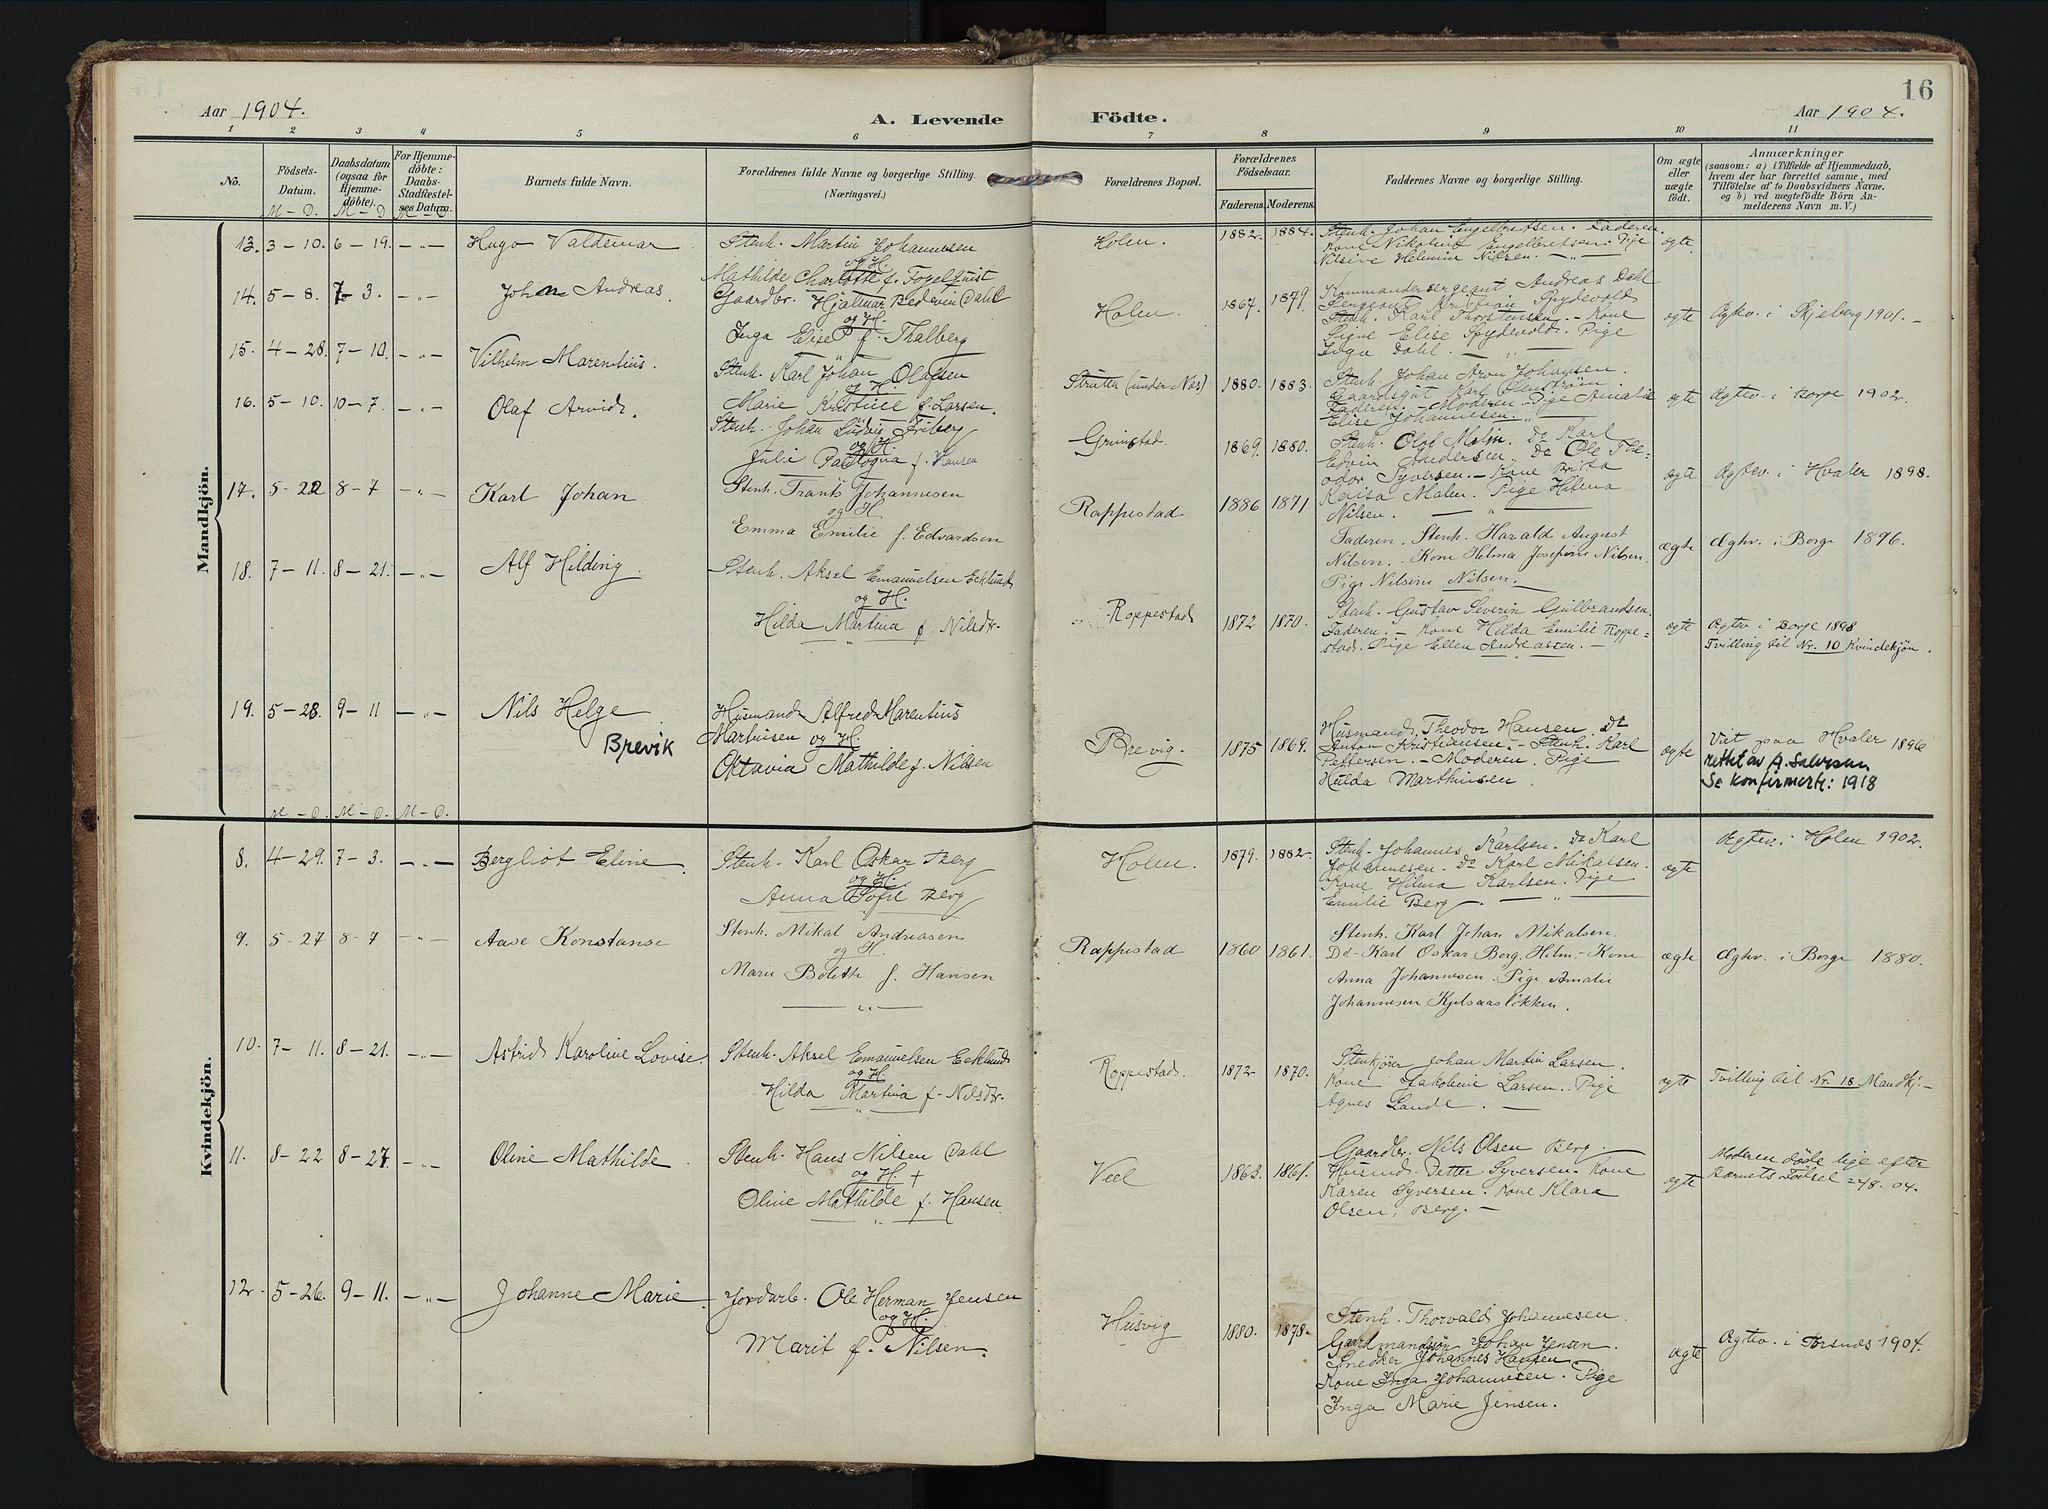 Aar 1904.
A. Levende Födte.
Aar 1904.
16
1 2 3 4 5 6 7 8 9 10 11
No.
Födsels-
Datum.
M – D.
Daabsdatum
(ogsaa for
Hjemme-
döbte).
M – D
For Hjemme-
döbte:
Daabs-
Stadfæstel-
ses Datum.
M – D.
Barnets fulde Navn.
Forældrenes fulde Navne og borgerlige Stilling.
(Næringsvei.)
Forældrenes Bopæl.
Forældrenes
Födselsaar.
Faderens. Moderens.
Faddernes Navne og borgerlige Stilling.
Om ægte
eller
uægte
födt.
Anmærkninger
(saasom: a) i Tilfælde af Hjemmedaab,
hvem der har forrettet samme, med
Tilföielse af to Daabsvidners Navne.
og b) ved uægtefödte Börn An-
melderens Navn m. V.)
Mandkjön.
13. 3–10. 6–19. – „ – Hugo Valdemar.
Stenh. Martin Johannesen
og H.
Mathilde Charlotte f. Fogelquist
Holen. 1882. 1884.
Stenh. Johan Engelbretsen. Faderen.
Kone Nikoline Engelbretsen. Pige
Nilsine Helmine Nilsen. – „ –
ægte
14. 5–8. 7–3. – „ – Johan Andreas.
Gaardbr. Hjalmar Dahl
og H.
Inga Elise f. Thalberg
Holen. 1867. 1879.
Kommandersergeant Andreas Dahl
Sergeant Kristian Spydevold
Stenh. Karl Thorstensen. – Kone
Signe Elise Spydevold. Pige
Inga Dahl. – „ –
ægte Ægtev. i Skjeberg 1901. –
15. 4–28. 7–10. – „ – Vilhelm Marentius.
Stenh. Karl Johan Olafsen
og H.
Marie Kristine f. Larsen.
Struten (under Næs) 1880. 1883.
Stenh. Johan Aron Johansen.
Gaardsgut Karl Olenström
Faderen. – Moderen. Pige Amalie
Elise Johannesen. – „ –
ægte Ægtev. i Borge 1902.
16. 5–10. 10–7. – „ – Olaf Arvid.
Stenh. Johan Ludvig Friberg
og H.
Julie f. Hansen
Grimstad. 1869. 1880.
Stenh. Olaf Malm. Do Karl
Edvin Andersen. Do Ole The-
odor Syversen. – Kone Brita
Kaisa Malm. Pige Hilma
Nilsen. – „ –
ægte Ægtev. i Hvaler 1898.
17. 5–22 8–7 – „ – Karl Johan
Stenh. Frants Johannesen
og H.
Emma Emilie f. Edvardsen
Rappestad 1886 1871
Faderen. Stenh. Harald August
Nilsen. Kone Helma Josefine Nilsen.
Pige Nilsine Nilsen. –
ægte Ægtv. i Borge 1896.
18. 7–11. 8–21. – „ – Alf Hilding.
Stenh. Aksel Emanuelsen Ecklund
og H.
Hilda Martina f. Nilsdtr.
Roppestad 1872 1870.
Stenh. Gustav Severin Gulbrandsen.
Faderen. – Kone Hilda Emilie Roppe-
stad. Pige Ellen Andreassen. –
ægte Ægtev. i Borge 1898
Tvilling til Nr. 10 Kvindekjön.
19. 5–28. 9–11 – „ – Nils Helge
Brevik
Husmand Alfred Marentius
Martinsen og H.
Oktavia Mathilde f. Nilsen
Brevig. 1875 1869.
Husmand Theodor Hansen. Do
Anton Kristiansen. – Stenh. Karl
Pettersen. – Moderen. Pige
Hulda Marthinsen.
ægte Viet paa Hvaler 1896
rettet av A. Salvesen
Se konfirmerte: 1918
M – D. M – D. M – D.
Kvindekjön.
8. 4–29. 7–3. – „ – Bergliot Eline.
Stenh. Karl Oskar Berg
og H.
Anna Sofie Berg
Holen. 1879. 1882.
Stenh. Johannes Karlsen. Do Karl
Johannesen. Do Karl Mikalsen.
Kone Hilma Karlsen. Pige
Emilie Berg. – „ –
ægte Ægtev. i Holen 1902.
9. 5–27 8–7 – „ – Aase Konstanse
Stenh. Mikal Andreasen
og H.
Marie Boleth f. Hansen
– „ –
Rappestad 1860 1861.
Stenh. Karl Johan Mikalsen.
Do – Karl Oskar Berg. Holm. – Kone
Anna Johannesen. Pige Amalie
Johannesen Kjelsaasløkken.
ægte Ægtv. i Borge 1880.
10. 7–11. 8–21. – „ – Astrid Karoline Lovise
Stenh. Aksel Emanuelsen Ecklund
og H.
Hilda Martina f. Nilsdtr.
Roppestad. 1872 1870.
Stenkjører Johan Martin Larsen.
Kone Jakobine Larsen. Pige
Agnes Lande. –
ægte Tvilling til Nr. 18 Mandkj: –
11. 8–22 8–27. – „ – Oline Mathilde.
Stenh. Hans Nilsen Dahl
og H. +
Oline Mathilde f. Hansen.
Veel 1863. 1861.
Gaardbr. Nils Olsen Berg.
Husmd. Petter Syversen. Kone
Karen Syversen. Kone Klara
Olsen, Berg. –
ægte Moderen døde lige efter
Barnets Fødsel 22/8. 04.
12. 5–26. 9–11. – „ – Johanne Marie.
Jordarb. Ole Herman Jensen
og H.
Marit f. Nilsen.
Husvig 1880. 1878.
Stenh. Thorvald Johannesen.
Gaardmandsøn Johan Jensen.
Snedker Johannes Hansen
Kone Inga Johannesen. Pige
Inga Marie Jensen.
ægte Ægtev. i Torsnes 1904.